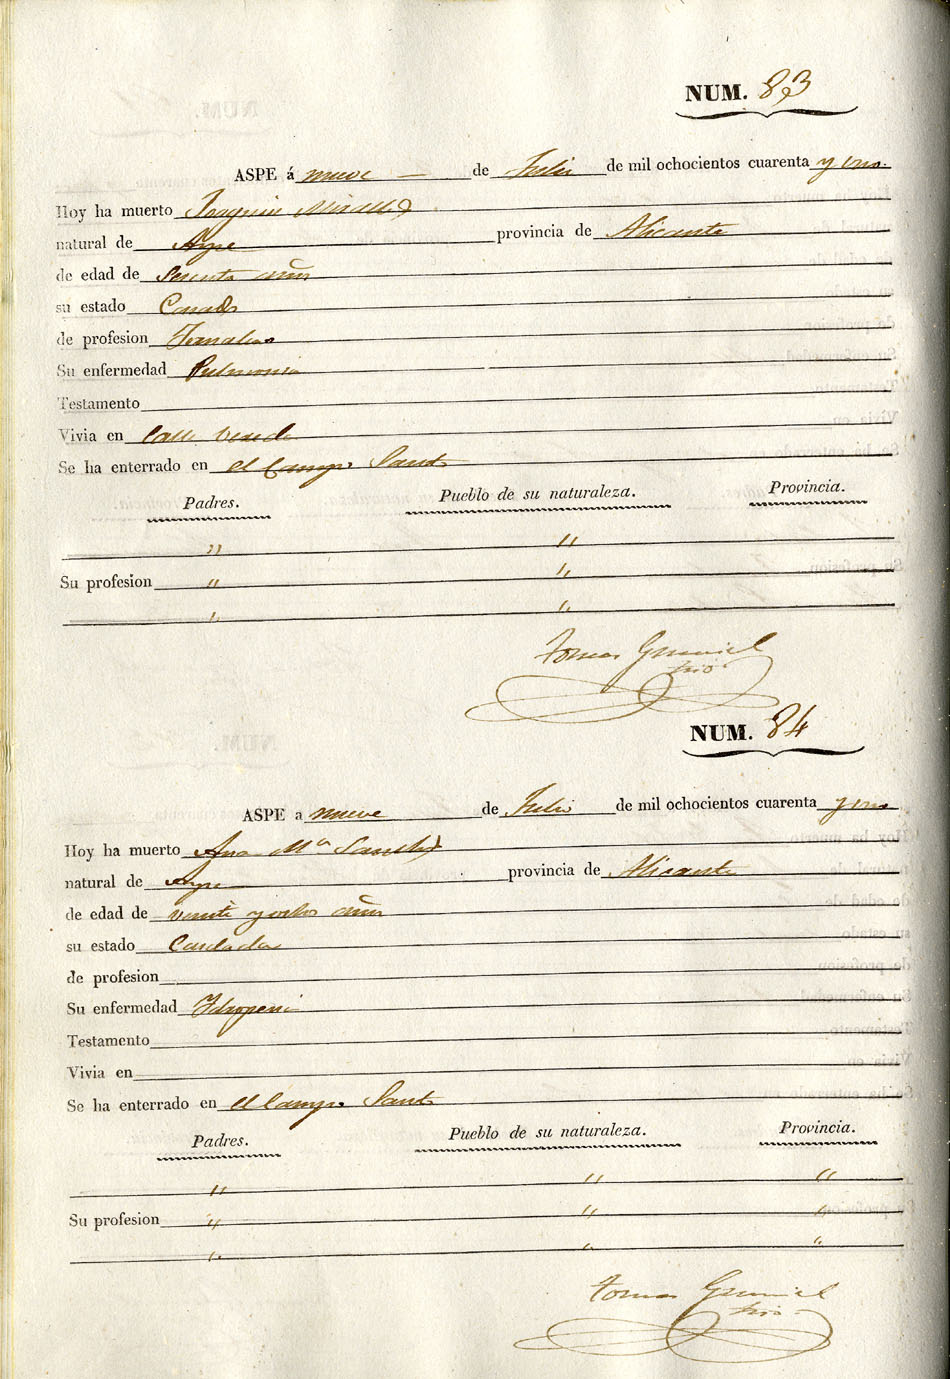 NUM. 83
ASPE á nueve de Julio de mil ochocientos cuarenta y uno.
Hoy ha muerto Joaquin Miralles
natural de Aspe provincia de Alicante
de edad de Sesenta años
su estado Casado
de profesion Jornalero
Su enfermedad Pulmonia
Testamento
Vivia en Calle
Se ha enterrado en el Campo Santo
Padres. Pueblo de su naturaleza. Provincia.
" "
Su profesion " "
" "
Tomas
NUM. 84
ASPE a nueve de Julio de mil ochocientos cuarenta y uno
Hoy ha muerto Ana Mª Sanchez
natural de Aspe provincia de Alicante
de edad de veinte y ocho años
su estado Casada
de profesion
Su enfermedad Idropesia
Testamento
Vivia en
Se ha enterrado en el Campo Santo
Padres. Pueblo de su naturaleza. Provincia.
" " "
Su profesion " " "
" " "
Tomas